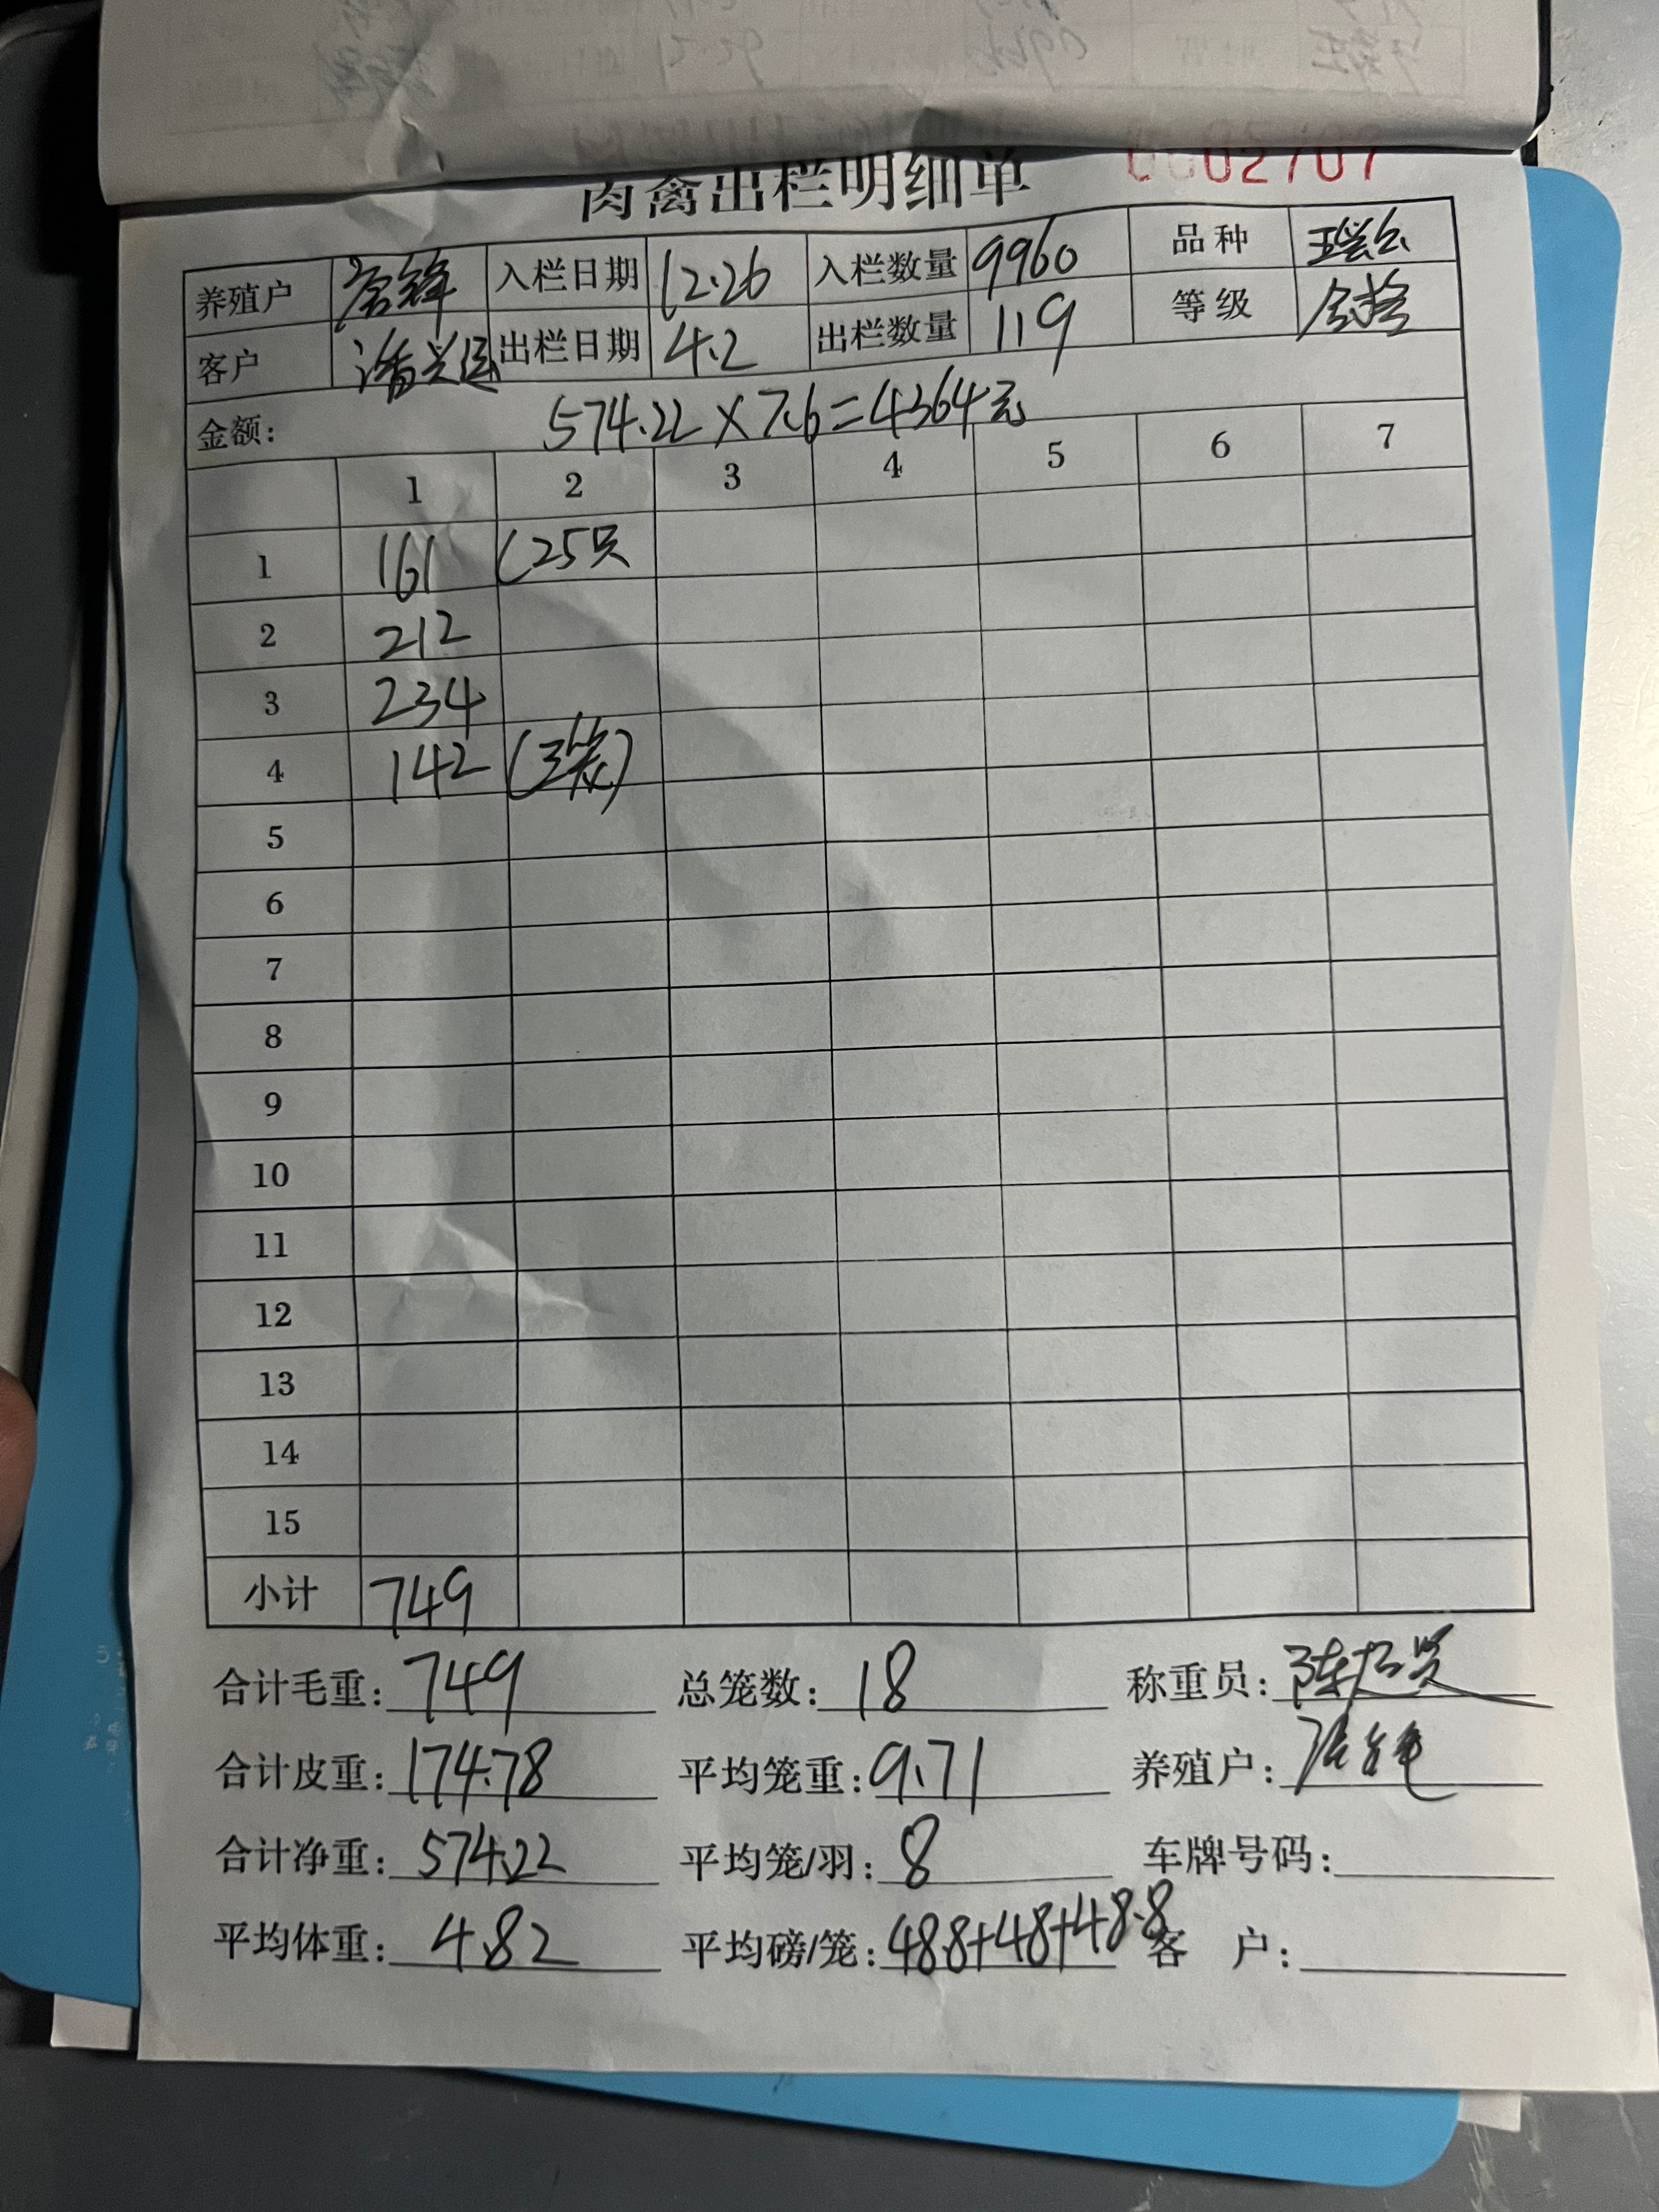 肉禽出栏明细单 0002707
养殖户 入栏日期 12.26 入栏数量 9960 品种
客户 潘兴国 出栏日期 4.2 出栏数量 119 等级
金额: 574.22×7.6=4364元
1 2 3 4 5 6 7
1 161 (25只
2 212
3 234
4 142 (3装)
5
6
7
8
9
10
11
12
13
14
15
小计 749
合计毛重: 749 总笼数: 18 称重员:
合计皮重: 174.78 平均笼重: 9.71 养殖户:
合计净重: 574.22 平均笼/羽: 8 车牌号码:
平均体重: 4.82 平均磅/笼: 48.8+48+48.8 客 户: